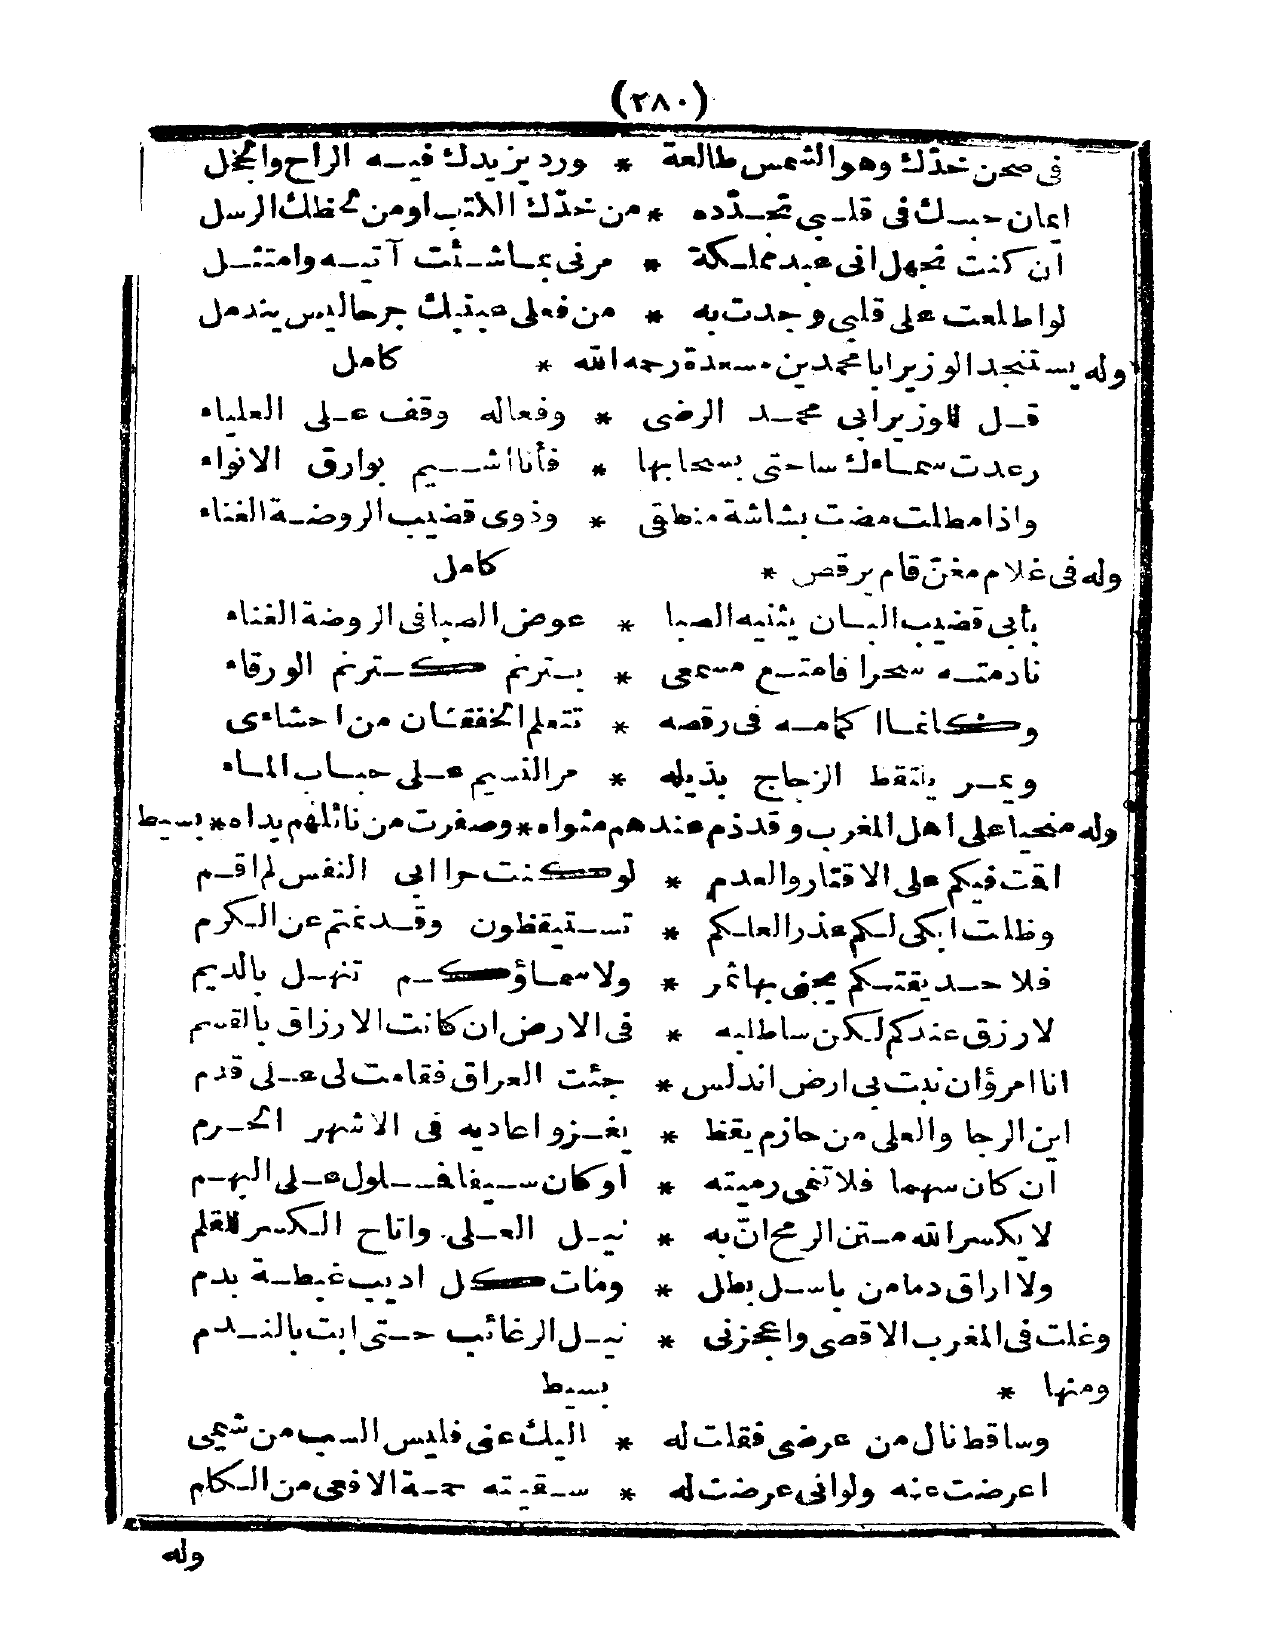 (٢٨٠)
فى صحن خدّك وهو الشمس طالعة * ورد يزيدك فيه الراح والخجل
ايمان حبك فى قلبى تجدّده * من خدّك الكتب او من لحظك الرسل
ان كنت تجهل انى عبد مملكة * مرنى بما شئت آتيه وامتثل
لو اطلعت على قلبى وجدت به * من فعلى عينيك جرحا ليس يندمل
وله يستنجد الوزير ابا محمد بن مسعدة رحمه الله * كامل
قل للوزير أبى محمد الرضى * وفعاله وقف على العلياء
رعدت سماءك ساحتى بسحابها * فأنا أشيم بوارق الانواء
واذا مطلت مضت بشاشة منطقى * وذوى قضيب الروضة الغناء
وله فى غلام مغنّ قام يرقص * كامل
بأبى قضيب البان يثنيه الصبا * عوض الصبا فى الروضة الغناء
نادمته سحرا فامتع مسمعى * بترنم كترنم الورقاء
وكانما اكمامه فى رقصه * تتعلم الخفقان من احشاءى
ويمر يلتقط الزجاج بذيله * مر النسيم على حباب الماء
وله منحيا على اهل المغرب وقد ذم عندهم مثواه * وصفرت من نائلهم يداه * بسيط
اقمت فيكم على الاقتار والعدم * لو كنت حرا ابى النفس لم اقم
وظلت ابكى لكم عذر العلكم * تستيقظون وقد نمتم عن الكرم
فلا حديقتكم يجنى بها ثمر * ولا سماؤكم تنهل بالديم
لا رزق عندكم لكن ساطلبه * فى الارض ان كانت الارزاق بالقسم
انا امرؤ ان نبت بى ارض اندلس * جئت العراق فقامت لى على قدم
اين الرجا والعلى من حازم يقظ * يغزو اعاديه فى الاشهر الحرم
ان كان سهما فلا تنمى رميته * او كان سيفا فلول على البهم
لا يكسر الله متن الرمح انّ به * نيل العلى واتاح الكسر للقلم
ولا اراق دما من باسل بطل * ومات كل اديب غبطة بدم
وغلت فى المغرب الاقصى واعجزنى * نيل الرغائب حتى ابت بالندم
ومنها * بسيط
وساقط نال من عرضى فقلت له * اليك عنى فليس السب من شيمى
اعرضت عنه ولو انى عرضت له * سقيته حمة الافعى من الكلم
وله